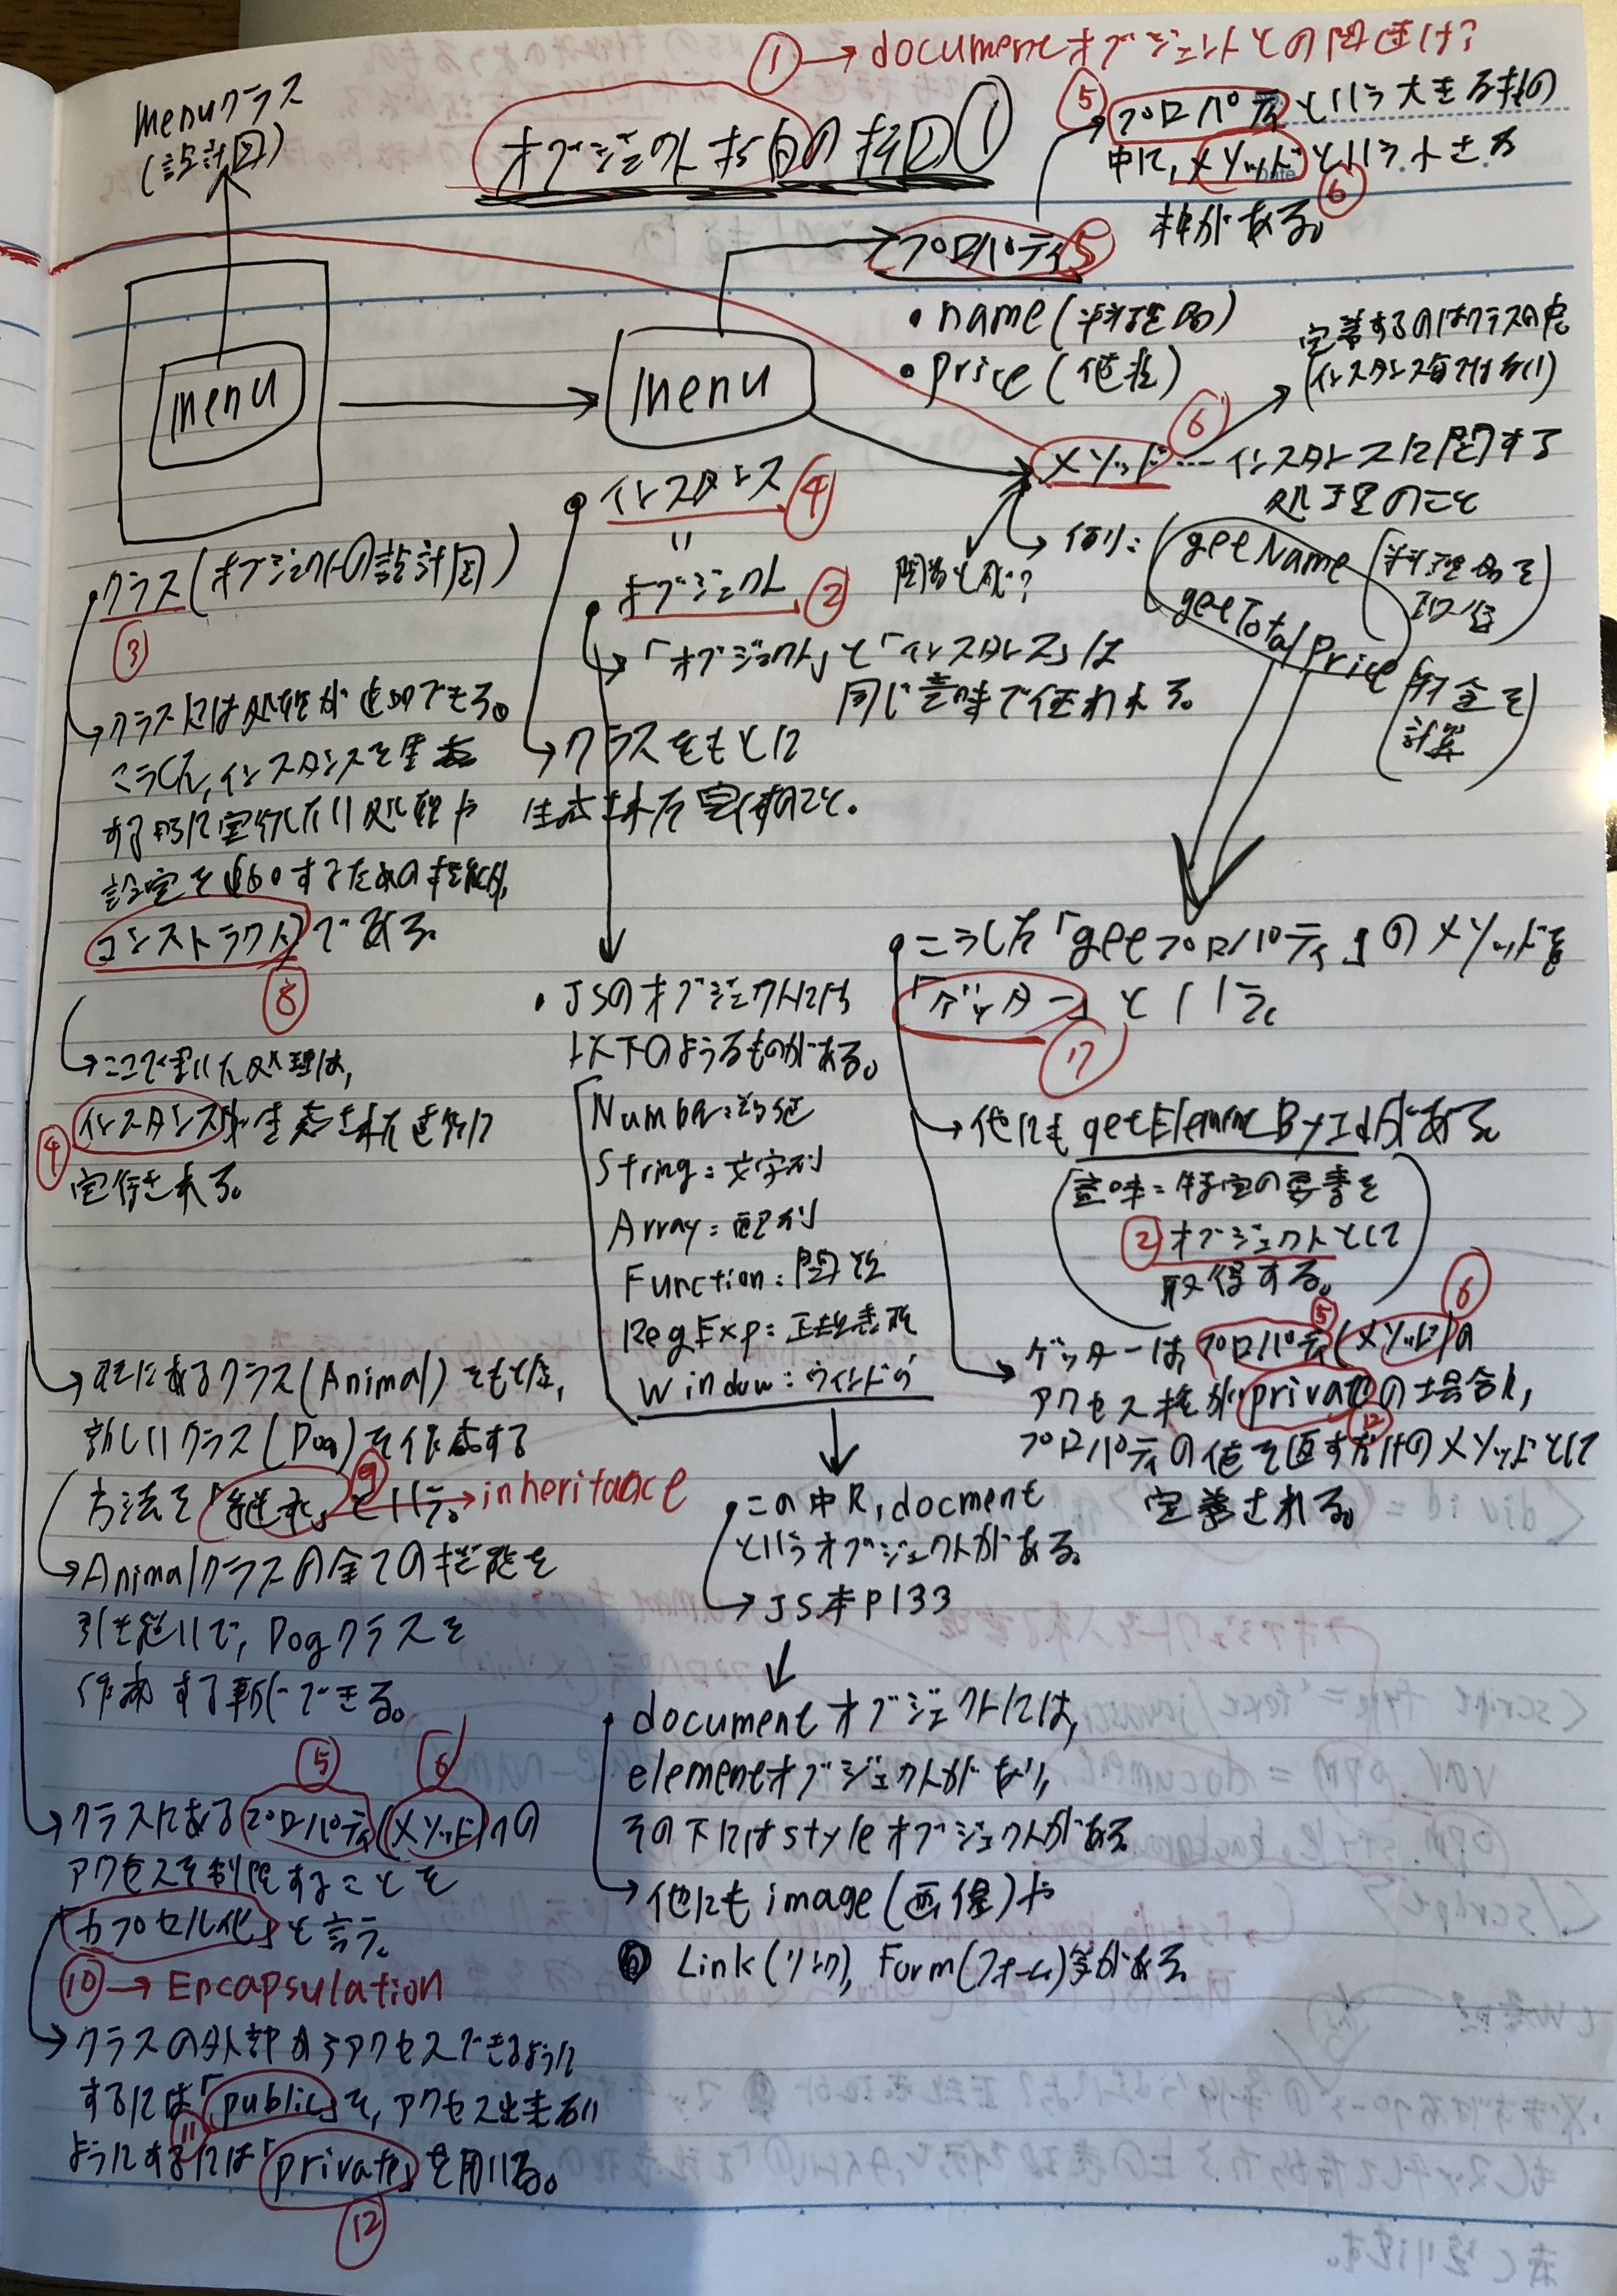 ① → documentオブジェクトとの関連は?
Menuクラス
(設計図)
オブジェクト指向の極図①
⑤
プロパティという大きな枠の
中に、メソッドという小さな
枠がある。
⑥
menu
menu
プロパティ ⑤
・name(料理名)
・price(値段)
定義するのはクラスの中。
(インスタンス毎ではない)
メソッド ⑥ … インスタンスに関する
処理のこと
関数と似?
例: getName (料理名を
取得)
getTotalPrice (料金を
計算)
・インスタンス ④
=
・オブジェクト ②
→「オブジェクト」と「インスタンス」は
同じ意味で使われる。
→クラスをもとに
生成された実体のこと。
・クラス(オブジェクトの設計図)
③
→クラスには処理が追加できる。
こうした、インスタンスを生成
する時に実行したい処理や
設定を追加するための機能が、
コンストラクタである。
⑧
→ここで書いた処理は、
④ インスタンスが生成された直後に
実行される。
→既にあるクラス(Animal)をもとに、
新しいクラス(Dog)を作成する
方法を「継承」という。⑨ → inheritance
→Animalクラスの全ての機能を
引き継いで、Dogクラスを
作成する事ができる。
⑤ ⑥
→クラスにあるプロパティ(メソッド)への
アクセスを制限することを
「カプセル化」と言う。
⑩ → Encapsulation
→クラスの外部からアクセスできるように
するには「public」を、アクセス出来ない
⑪
ようにするには「private」を用いる。
⑫
・JSのオブジェクトには
以下のようなものがある。
Number:数値
String:文字列
Array:配列
Function:関数
RegExp:正規表現
Window:ウィンドウ
・この中に、docment
というオブジェクトがある。
→JS本P133
・documentオブジェクトには、
elementオブジェクトがあり、
その下にはstyleオブジェクトがある
→他にもimage(画像)や
Link(リンク), Form(フォーム)等がある。
・こうした「getプロパティ」のメソッドを
「ゲッター」という。
⑰
→他にもgetElementByIdがある。
(意味:特定の要素を
②オブジェクトとして
取得する。)
⑤ ⑥
→ゲッターは、プロパティ(メソッド)の
アクセス権がprivateの場合に、
⑫
プロパティの値を返すだけのメソッドとして
定義される。